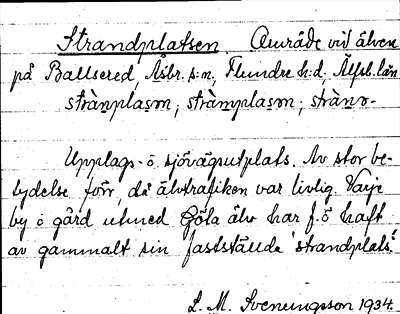 Strandplatsen. Område vid älven
på Ballsered, Åsbr. s:n, Flundre h:d, Älfsb. län
strànplasǝn; strànplasǝn; stràno-
Upplags- o. sjövägsutplats. Av stor be-
tydelse förr, då älvtrafiken var livlig. Varje
by o gård utmed Göta älv har f.ö haft
av gammalt sin fastställda 'strandplats.'
L. M. Svenungsson 1934.